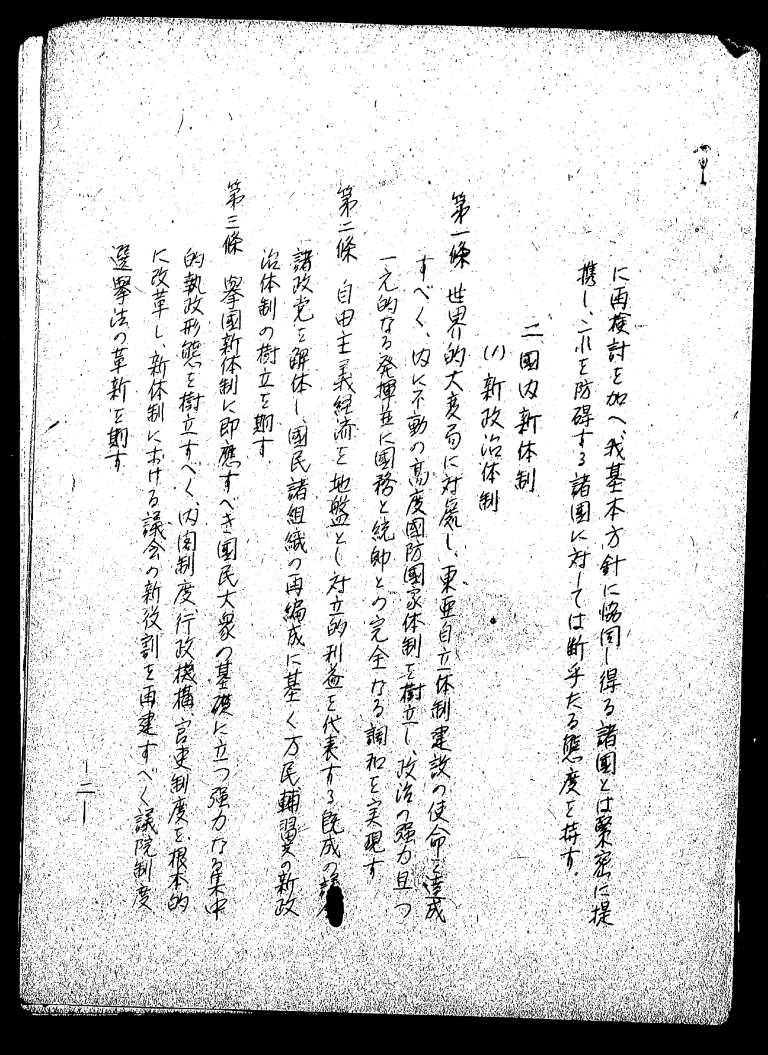 に再検討を加へ我基本方針に協同し得る諸国とは緊密に提
携し、これを防碍する諸国に対しては断乎たる態度を持す.
二 國内新体制
(1) 新政治体制
第一條 世界的大変局に対處し、東亜自立体制建設の使命を達成
すべく、内に不動の高度國防國家体制を樹立し、政治の强力且つ
一元的なる発揮並に國務と統帥との完全なる調和を実現す
第二條 自由主義経済を地盤とし対立的利益を代表する既成の
諸政党を解体し、國民諸組織の再編成に基く万民輔翼の新政
治体制の樹立を期す
第三條 挙國新体制に即應すべき國民大衆の基礎に立つ强力なる集中
的執政形態を樹立すべく、内閣制度、行政機構、官吏制度を根本的
に改革し、新体制における議会の新役割を再建すべく議院制度
選挙法の革新を期す
—二—